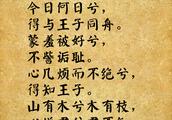 今日何日兮，
得与王子同舟。
蒙羞被好兮，
不訾诟耻。
心几烦而不绝兮，
得知王子。
山有木兮木有枝，